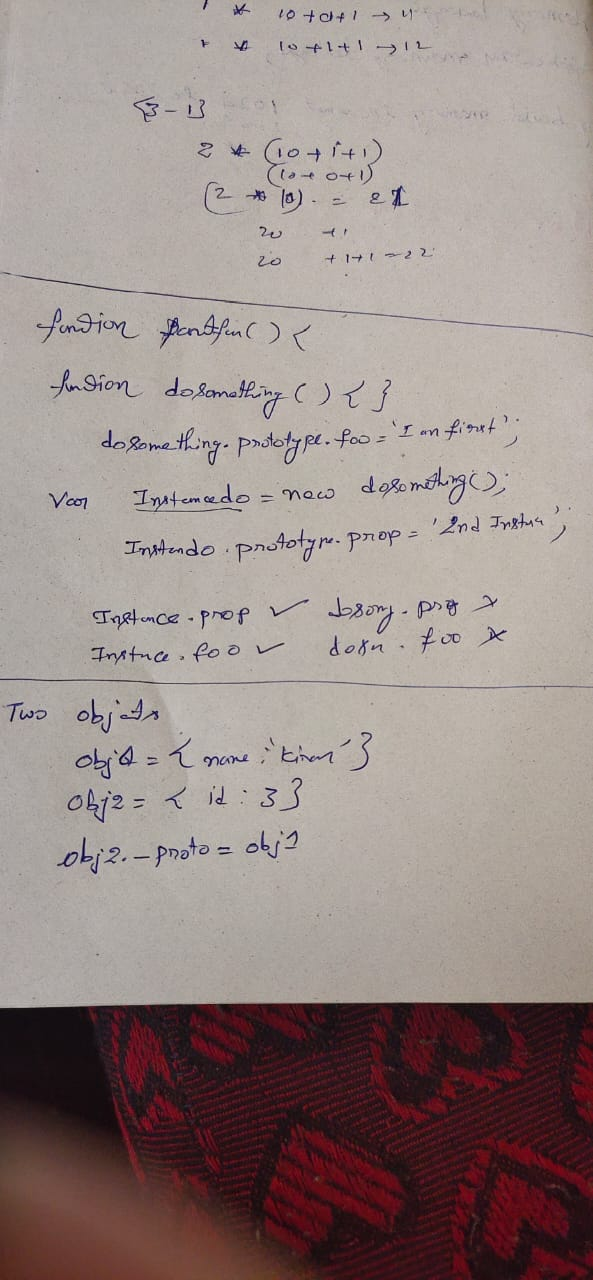 * 10+0+1 → 11
* 10+1+1 → 12
{3-1}
2 * (10+1+1)
(10+0+1)
(2 * 10) = 21
20 +1
20 +1+1=22
function () {
function dosomething () { }
dosomething.prototype.foo='I am first';
Var Instancedo = new dosomething();
Instando.prototype.prop = '2nd
Instance.prop ✓ x
Instnce.foo ✓ .foo x
Two objects
= { name:'kiran'}
obj2 = { id:3}
obj2._proto = obj1